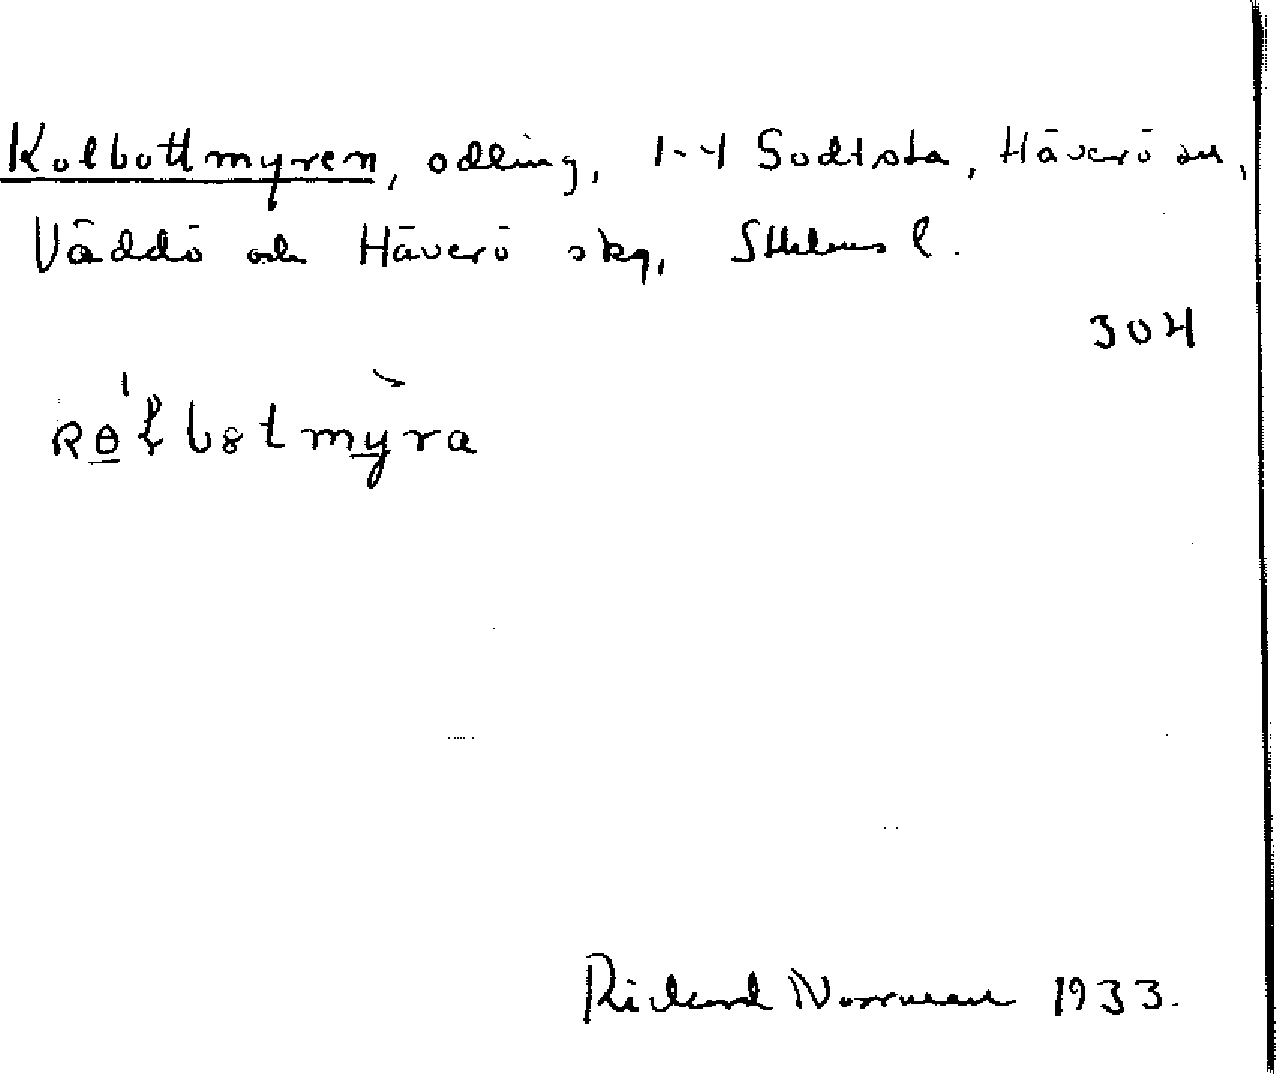 Kolbottmyren, odling, 1-4 Sodtsta, Häverö sn,
Väddö och Häverö skg, Sthlms l.
304
Richard Norrman 1933.